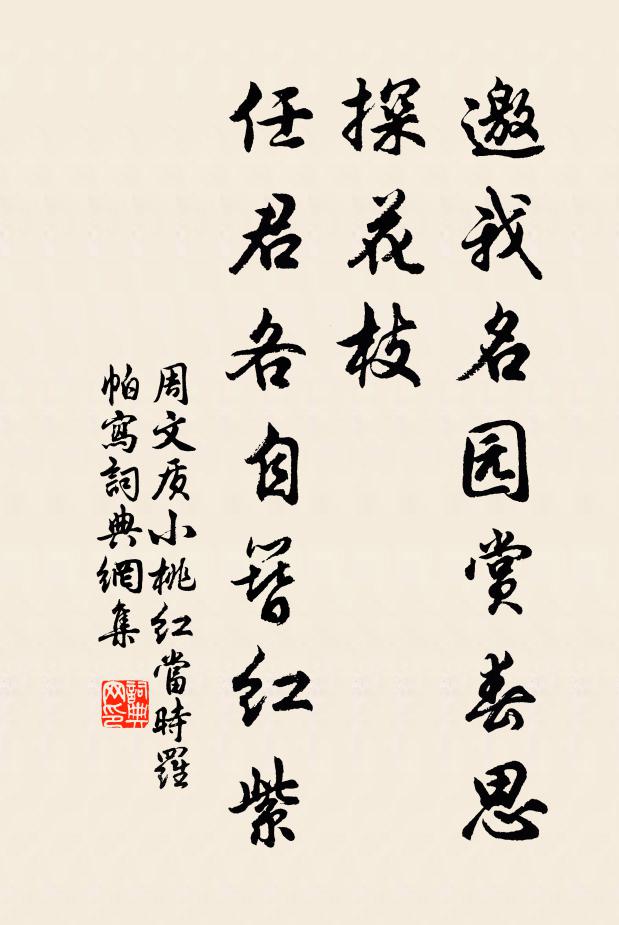 邀我名园赏春思
探花枝
任君各自簪红紫
周文质小桃红當時羅
帕寫詞典網集
詞典网印